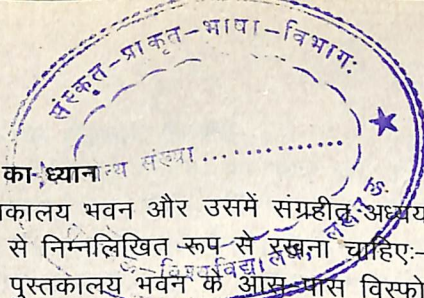 संस्कृत-प्राकृत-भाषा-विभागः
का ध्यान
ग्रन्थ संख्या ....................
कालय भवन और उसमें संग्रहीत अध्यय
से निम्नलिखित रूप से रखना चाहिए:-
पुस्तकालय भवन के आस-पास विस्फो